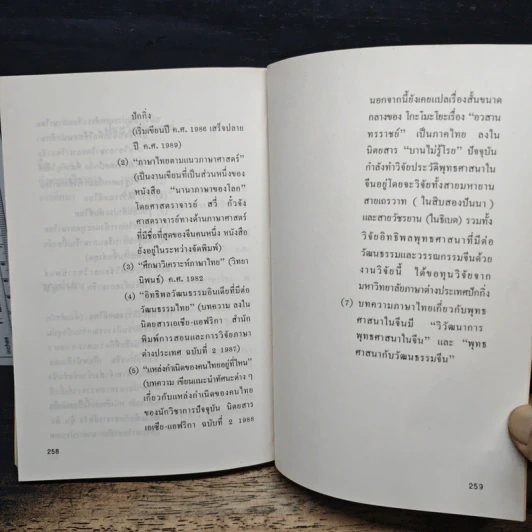 ปักกิ่ง
(เริ่มเขียนปี ค.ศ. 1986 เสร็จปลาย
ปี ค.ศ. 1989)
(2) "ภาษาไทยตามแนวภาษาศาสตร์"
(เป็นงานเขียนที่เป็นส่วนหนึ่งของ
หนังสือ "นานาภาษาของโลก"
โดยศาสตราจารย์ สวี่ กั๋วจัง
ศาสตราจารย์ทางด้านภาษาศาสตร์
ที่มีชื่อที่สุดของจีนคนหนึ่ง หนังสือ
ยังอยู่ในระหว่างจัดพิมพ์)
(3) "ศึกษาวิเคราะห์ภาษาไทย" (วิทยา
นิพนธ์) ค.ศ. 1982
(4) "อิทธิพลวัฒนธรรมอินเดียที่มีต่อ
วัฒนธรรมไทย" (บทความ ลงใน
นิตยสารเอเชีย-แอฟริกา สำนัก
พิมพ์การสอนและการวิจัยภาษา
ต่างประเทศ ฉบับที่ 2 1987)
(5) "แหล่งกำเนิดของคนไทยอยู่ที่ไหน"
(บทความ เขียนแนะนำทัศนะต่าง ๆ
เกี่ยวกับแหล่งกำเนิดของคนไทย
ของนักวิชาการปัจจุบัน นิตยสาร
เอเชีย-แอฟริกา ฉบับที่ 2 1988
258
นอกจากนี้ยังเคยแปลเรื่องสั้นขนาด
กลางของ โกะโมะโยะเรื่อง "อวสาน
ทรราชย์" เป็นภาคไทย ลงใน
นิตยสาร "บานไม่รู้โรย" ปัจจุบัน
กำลังทำวิจัยประวัติพุทธศาสนาใน
จีนอยู่โดยจะวิจัยทั้งสายมหายาน
สายเถรวาท (ในสิบสองปันนา)
และสายวัชรยาน (ในธิเบต) รวมทั้ง
วิจัยอิทธิพลพุทธศาสนาที่มีต่อ
วัฒนธรรมและวรรณกรรมจีนด้วย
งานวิจัยนี้ ได้ขอทุนวิจัยจาก
มหาวิทยาลัยภาษาต่างประเทศปักกิ่ง
(7) บทความภาษาไทยเกี่ยวกับพุทธ
ศาสนาในจีนมี "วิวัฒนาการ
พุทธศาสนาในจีน" และ "พุทธ
ศาสนากับวัฒนธรรมจีน"
259